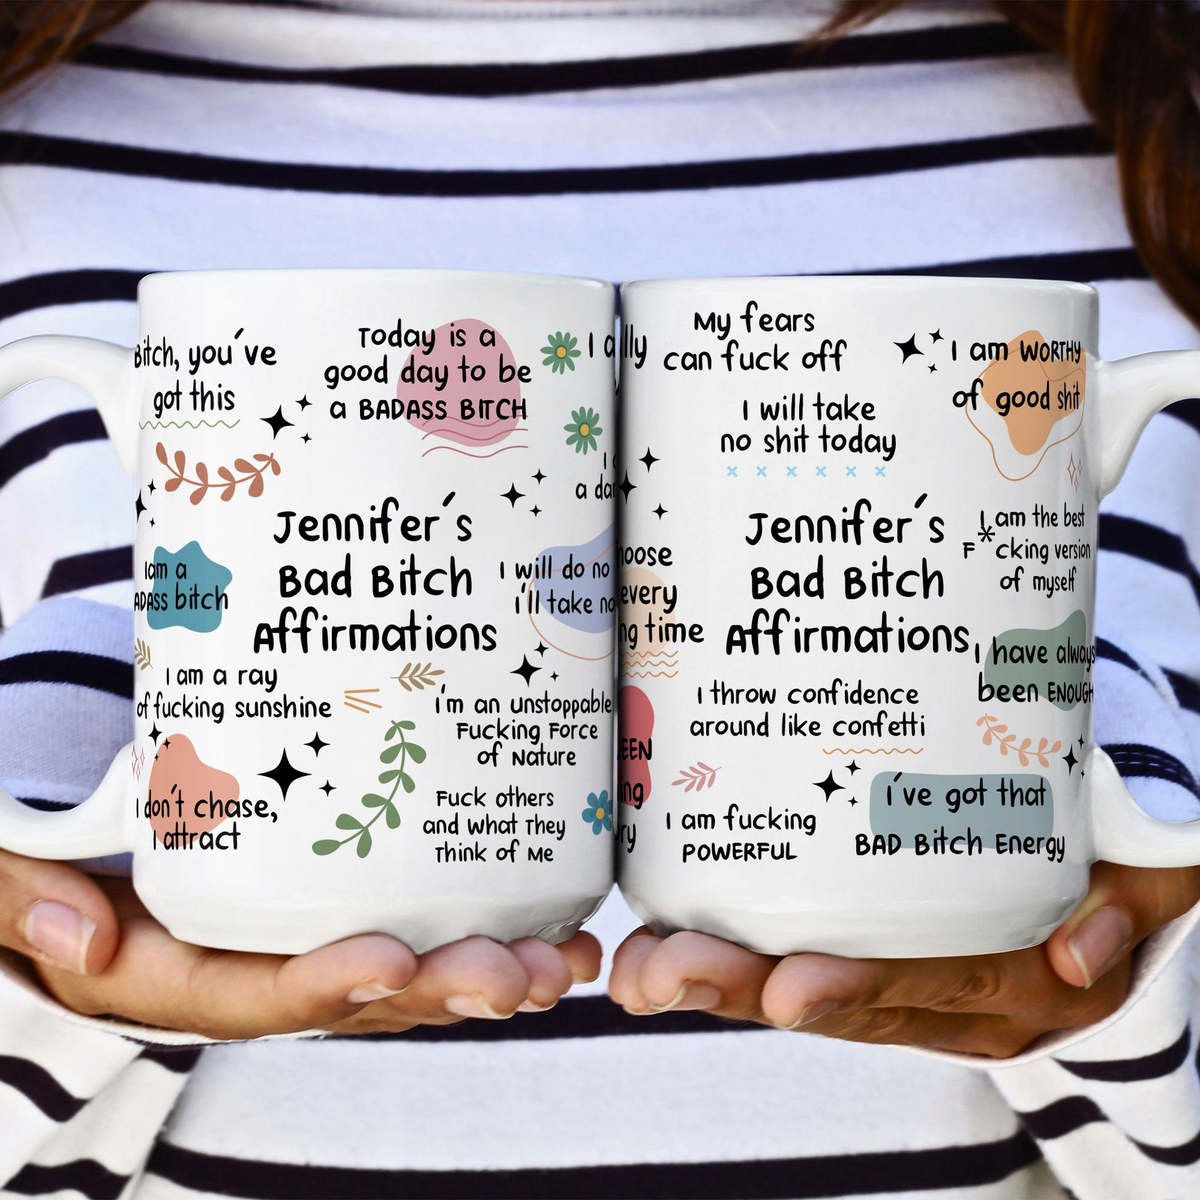 Bitch, you've
got this
Today is a
good day to be
a BADASS BITCH
I am a
BADASS bitch
Jennifer's
Bad Bitch
Affirmations
I will do no
I'll take no
I am a ray
of fucking sunshine
I'm an unstoppable
Fucking Force
of Nature
I don't chase,
I attract
Fuck others
and What They
Think of Me
My fears
can fuck off
I am WORTHY
of good shit
I will take
no shit today
Jennifer's
Bad Bitch
Affirmations
I am the best
F*cking version
of myself
every
time
I have always
been ENOUGH
I throw confidence
around like confetti
I am fucking
POWERFUL
I've got that
BAD Bitch Energy